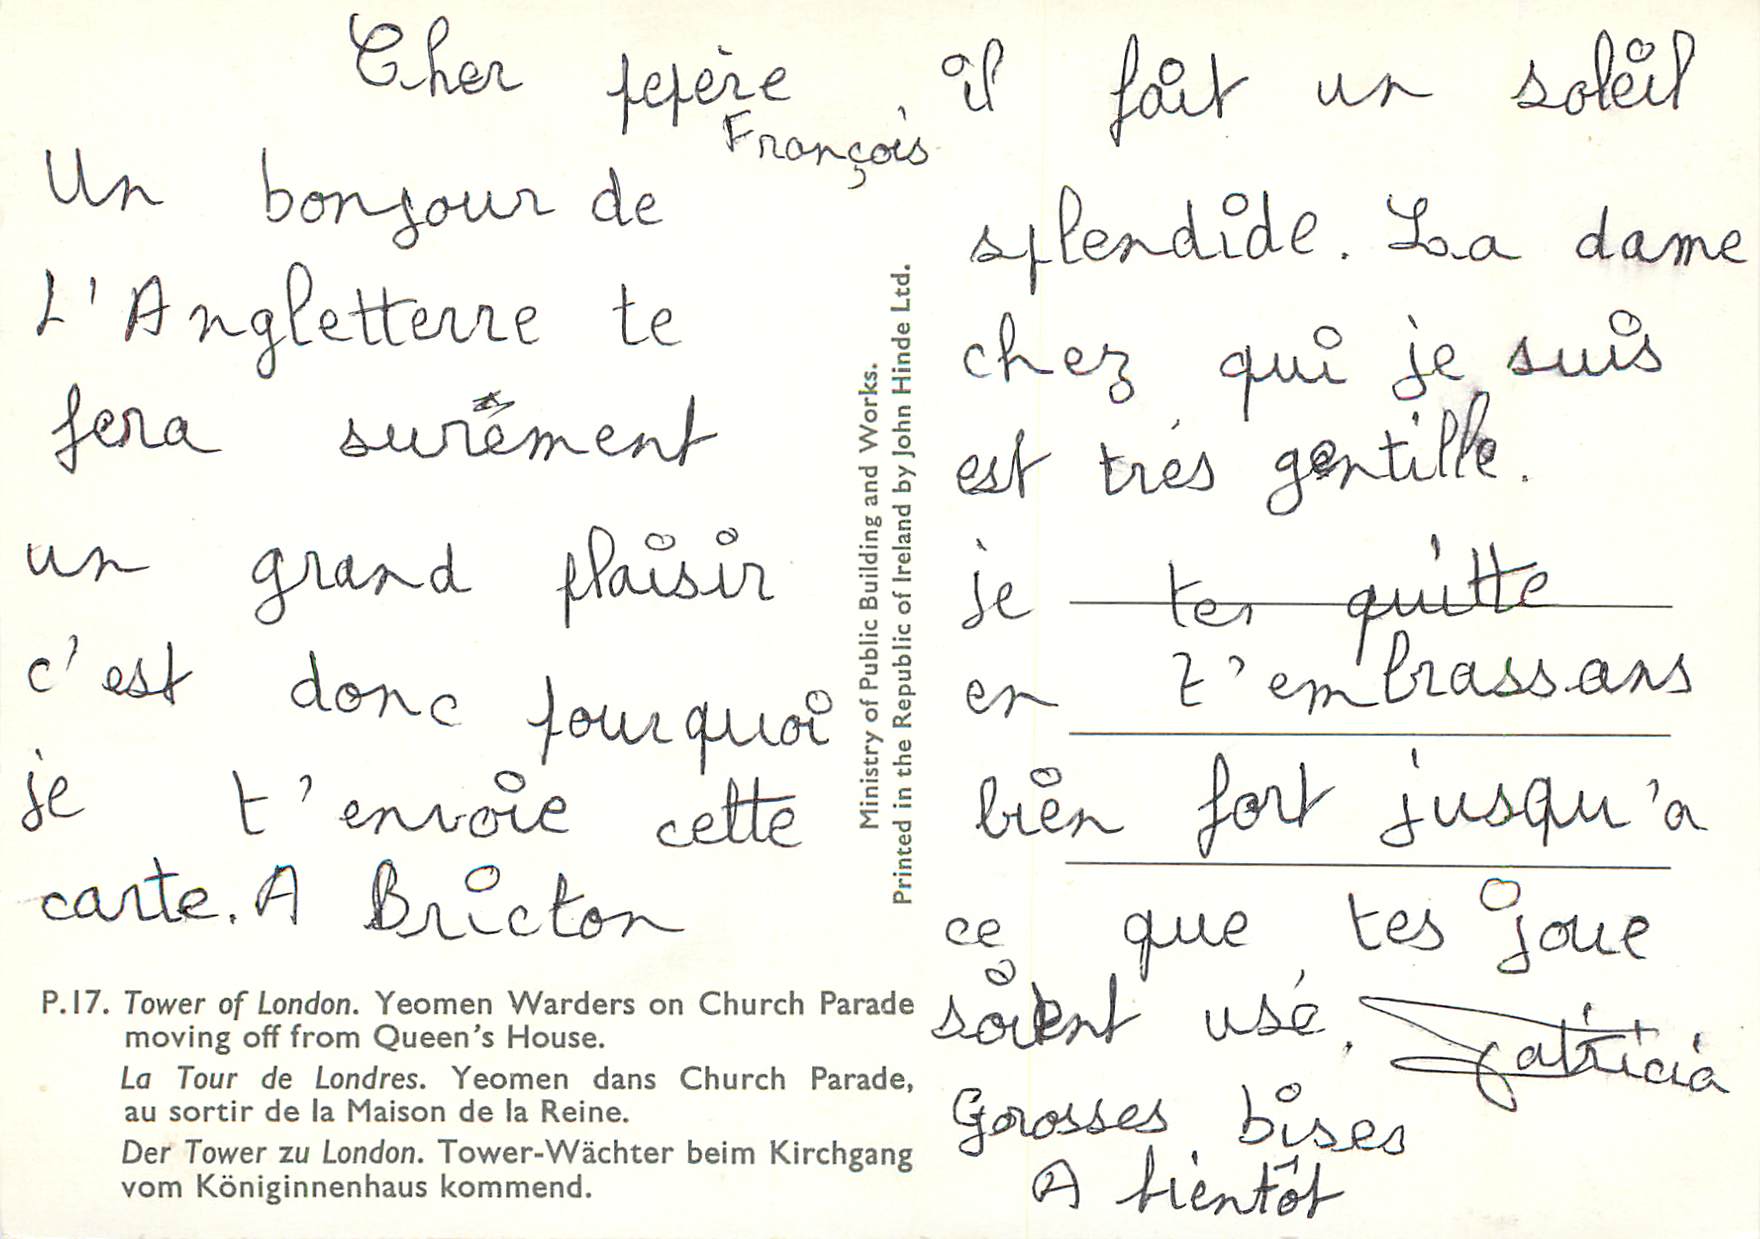 Cher pepère
François
Un bonjour de
L'Angletterre te
fera surêment
un grand plaisir
c'est donc pourquoi
je t'envoie cette
carte. A Bricton
P.17. Tower of London. Yeomen Warders on Church Parade
moving off from Queen's House.
La Tour de Londres. Yeomen dans Church Parade,
au sortir de la Maison de la Reine.
Der Tower zu London. Tower-Wächter beim Kirchgang
vom Königinnenhaus kommend.
Ministry of Public Building and Works.
Printed in the Republic of Ireland by John Hinde Ltd.
, il fait un soleil
splendide. La dame
chez qui je suis
est trés gentille.
je tes quitte
en t'embrassans
bien fort jusqu'a
ce que tes joue
soient usé.
Patricia
Grosses bises
A bientôt